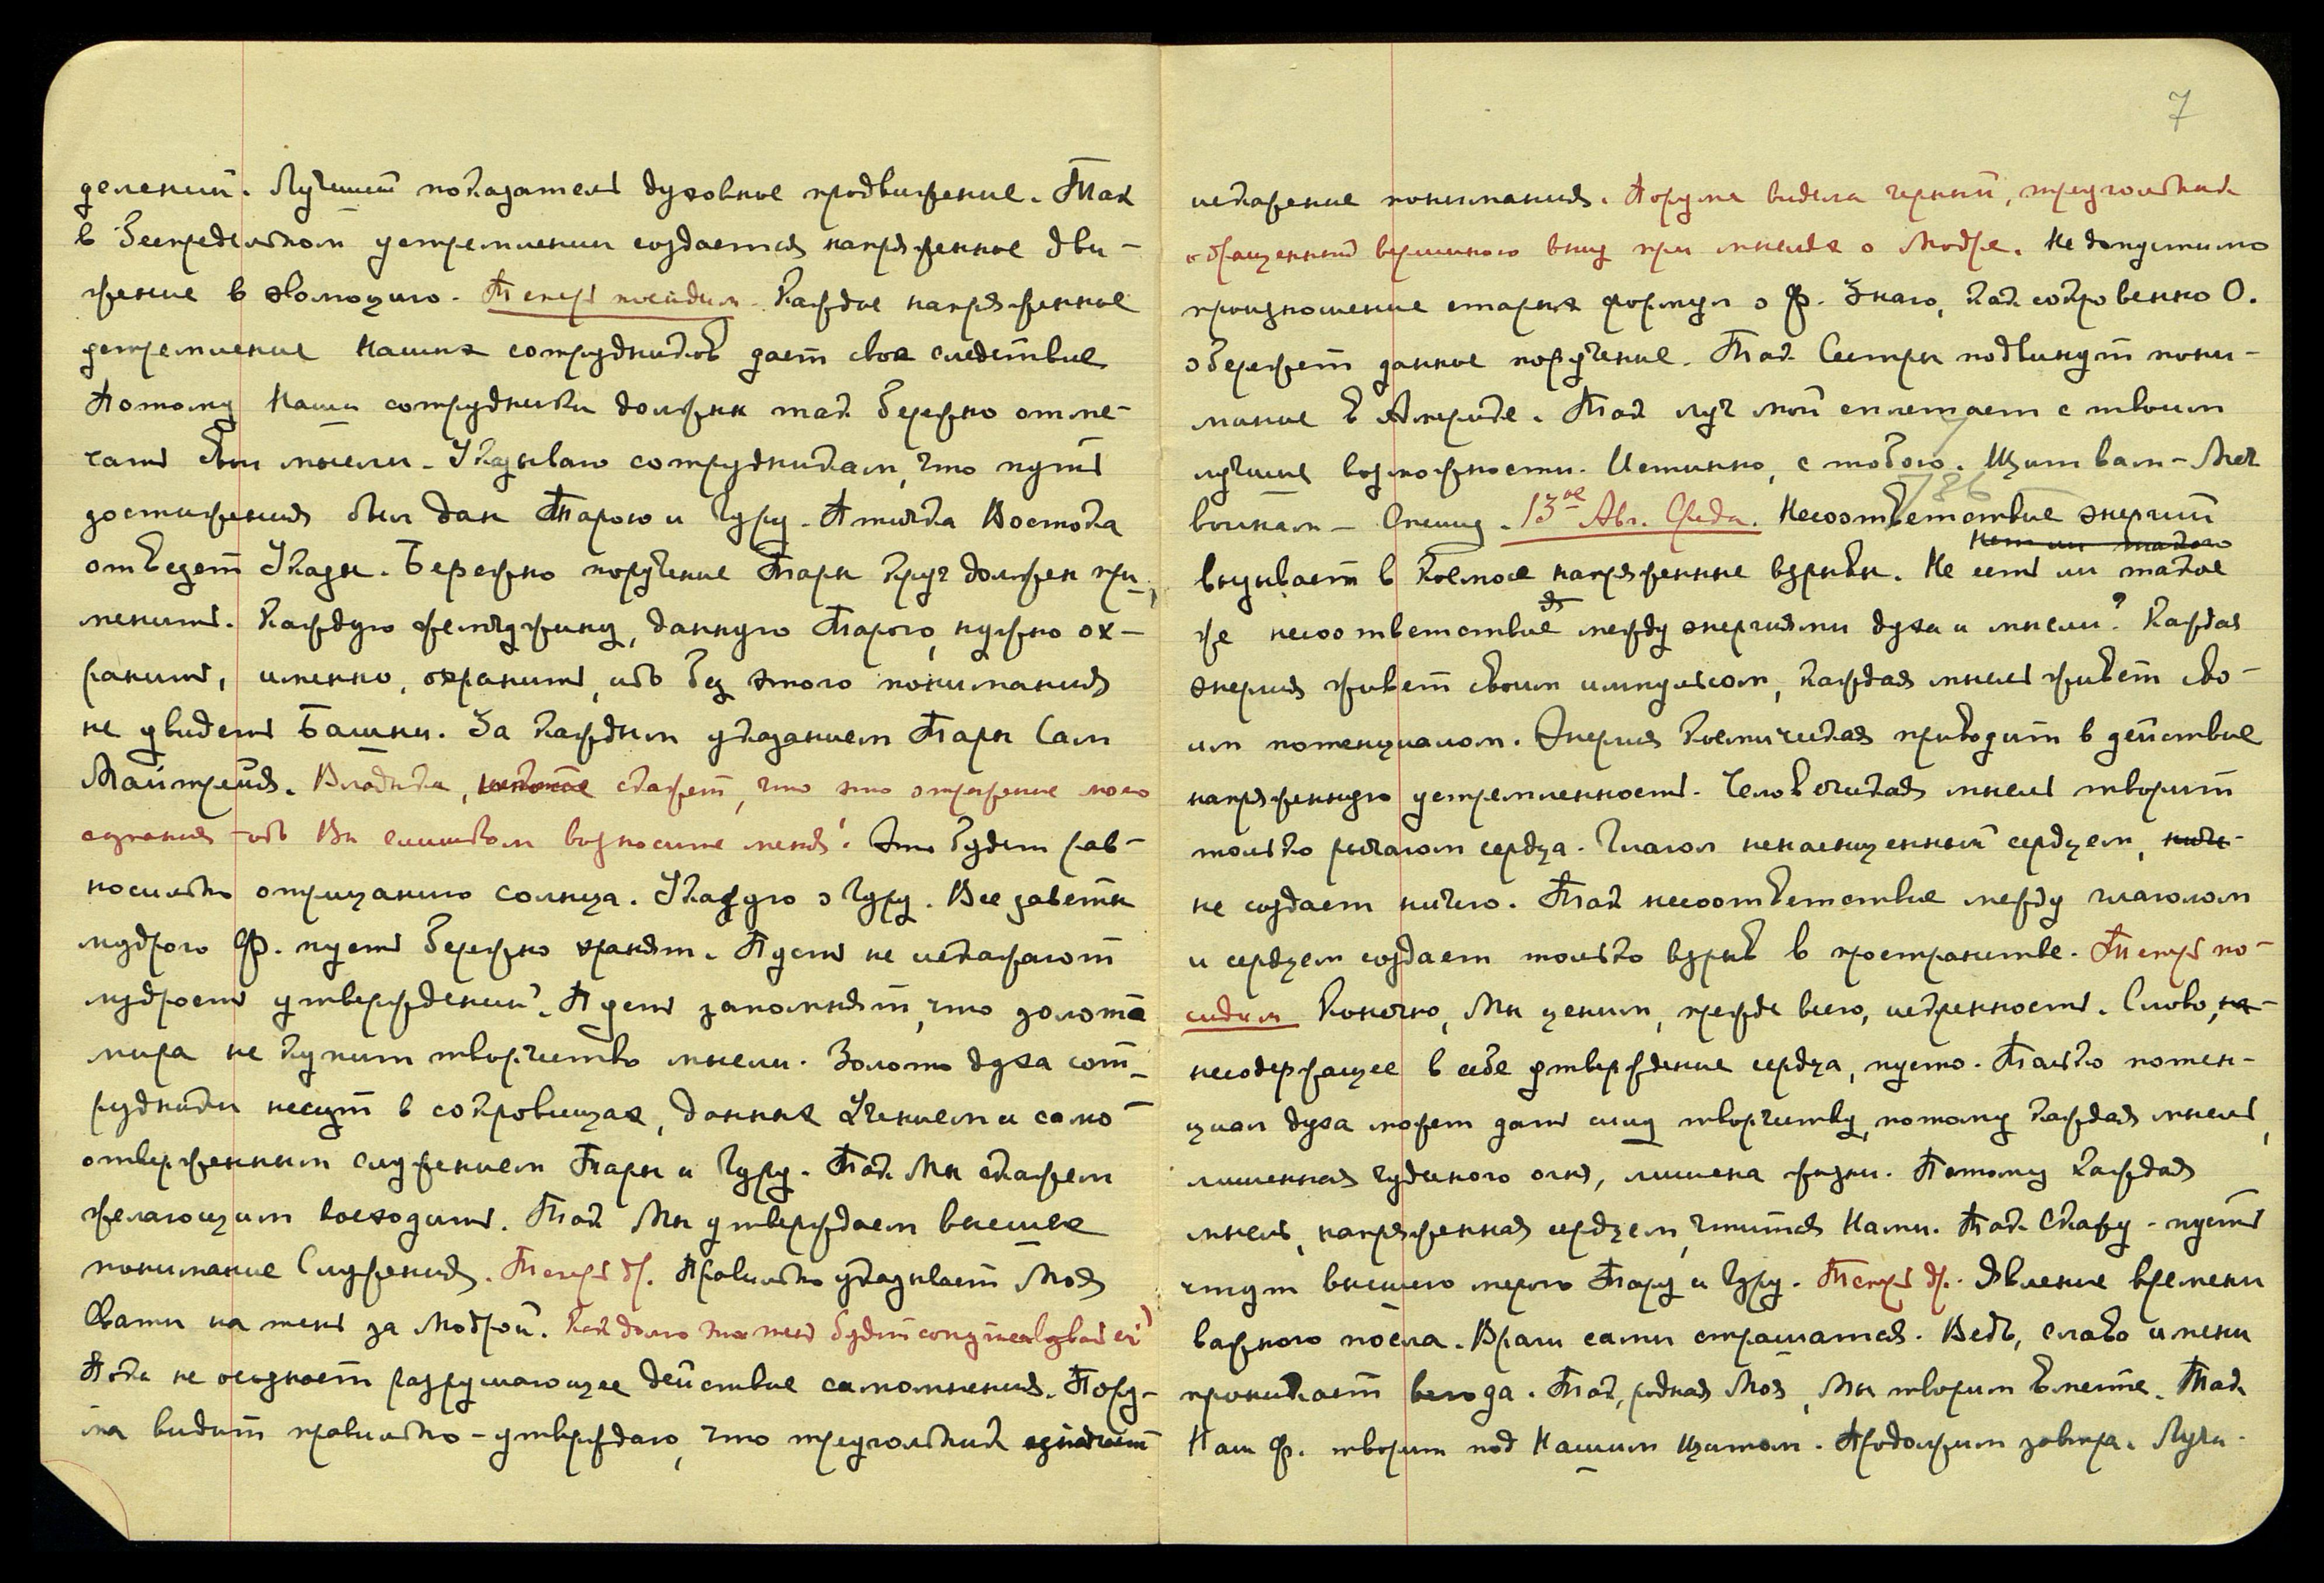 делений. Лучший показатель духовное продвижение. Так
в беспредельном устремлении создается напряженное дви-
жение в эволюцию. Теперь посидим. Каждое напряженное
устремление Наших сотрудников дает свое следствие
Потому Наши сотрудники должны так бережно отме-
чать свои мысли. Указываю сотрудникам, что путь
достижения был дан Тарою и Гуру. Птичка Востока
отвезет Указы. Бережно поручение Тары круг должен при-
менить. Каждую жемчужину, данную Тарою, нужно ох-
ранить, именно, охранить, ибо без этого понимания
не увидеть Башни. За каждым указанием Тары Сам
Майтрейя. Владыка, скажет, что это отражение моего
сознания - ибо Вы слишком возносите меня! Это будет рав-
носильно отрицанию солнца. Укажу о Гуру. Все заветы
мудрого Ф. пусть бережно хранят. Пусть не искажают
мудрость утверждений. Пусть запомнят, что золото
мира не купит творчество мысли. Золото духа сот-
рудники несут в сокровищах, данных Учением и само-
отверженным служением Тары и Гуру. Так Мы скажем
желающим восходить. Так Мы утверждаем высшее
понимание Служения. Теперь др. Правильно указывает Моя
Свати на тень за Модрой. Как долго эта тень будет сопутствовать ей?
Пока не осознает разрушающее действие самомнения. Пору-
ма видит правильно - утверждаю, что треугольник означает
7
искажение понимания. Порума видела черный, треугольник
обращенный вершиною вниз при мыслях о Модре. Недопустимо
произношение старых формул о Ф. Знаю, как сокровенно О.
обережет данное поручение. Так Сестры подвинут пони-
мание в Америке. Так луч мой сплетает с твоим
лучшие возможности. Истинно, с тобою. Щит вам - Меч
воинам - Спешу. 13ое Авг. Среда. Несоответствие энергий
186
вызывает в Космосе напряженные взрывы. Не есть ли такое
же несоответствие между энергиями духа и мысли? Каждая
энергия живет своим импульсом, каждая мысль живет сво-
им потенциалом. Энергия Космическая приводит в действие
напряженную устремленность. Человеческая мысль творит
только рычагом сердца. Глагол ненасыщенный сердцем,
не создает ничего. Так несоответствие между глаголом
и сердцем создает только взрыв в пространстве. Теперь по-
сидим Конечно, Мы ценим, прежде всего, искренность. Слово, не-
несодержащее в себе утверждение сердца, пусто. Только потен-
циал духа может дать силу творчеству, потому каждая мысль,
лишенная чудного огня, лишена жизни. Потому каждая
мысль, напряженная сердцем, чтится Нами. Так Скажу - пусть
чтут высшею мерою Тару и Гуру. Теперь др. Явление времени
важного посла. Враги сами страшатся. Ведь, слово имени
проникает всюда. Так, родная Моя, Мы творим вместе. Так
Наш Ф. творит под Нашим Щитом. Продолжим завтра. Лучи.